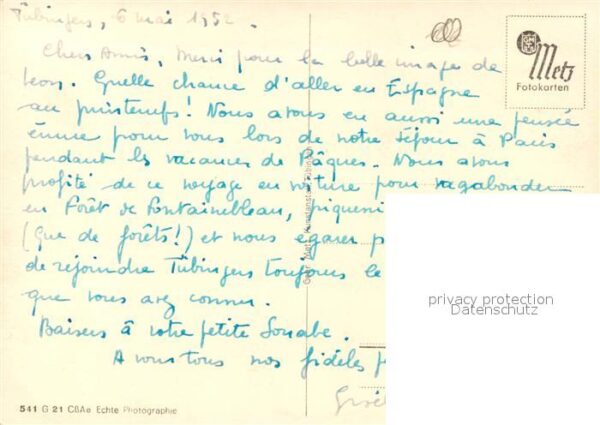 Tübingen, 6 mai 1952.
Chers Amis, Merci pour la belle image de
Leon. Quelle chance d'aller en Espagne
au printemps! Nous avons eu aussi une pensée
émue pour vous lors de notre séjour à Paris
pendant les vacances de Pâques. Nous avons
profité de ce voyage en voiture pour vagabonder
en Forêt de Fontainebleau,
(que de forêts!) et nous égarer
de rejoindre Tübingen toujours le
que vous avez connu.
Baisers à votre petite Souabe.
A vous tous nos fidèles
Metz
Fotokarten
privacy protection
Datenschutz
541 G 21 CßAe Echte Photographie